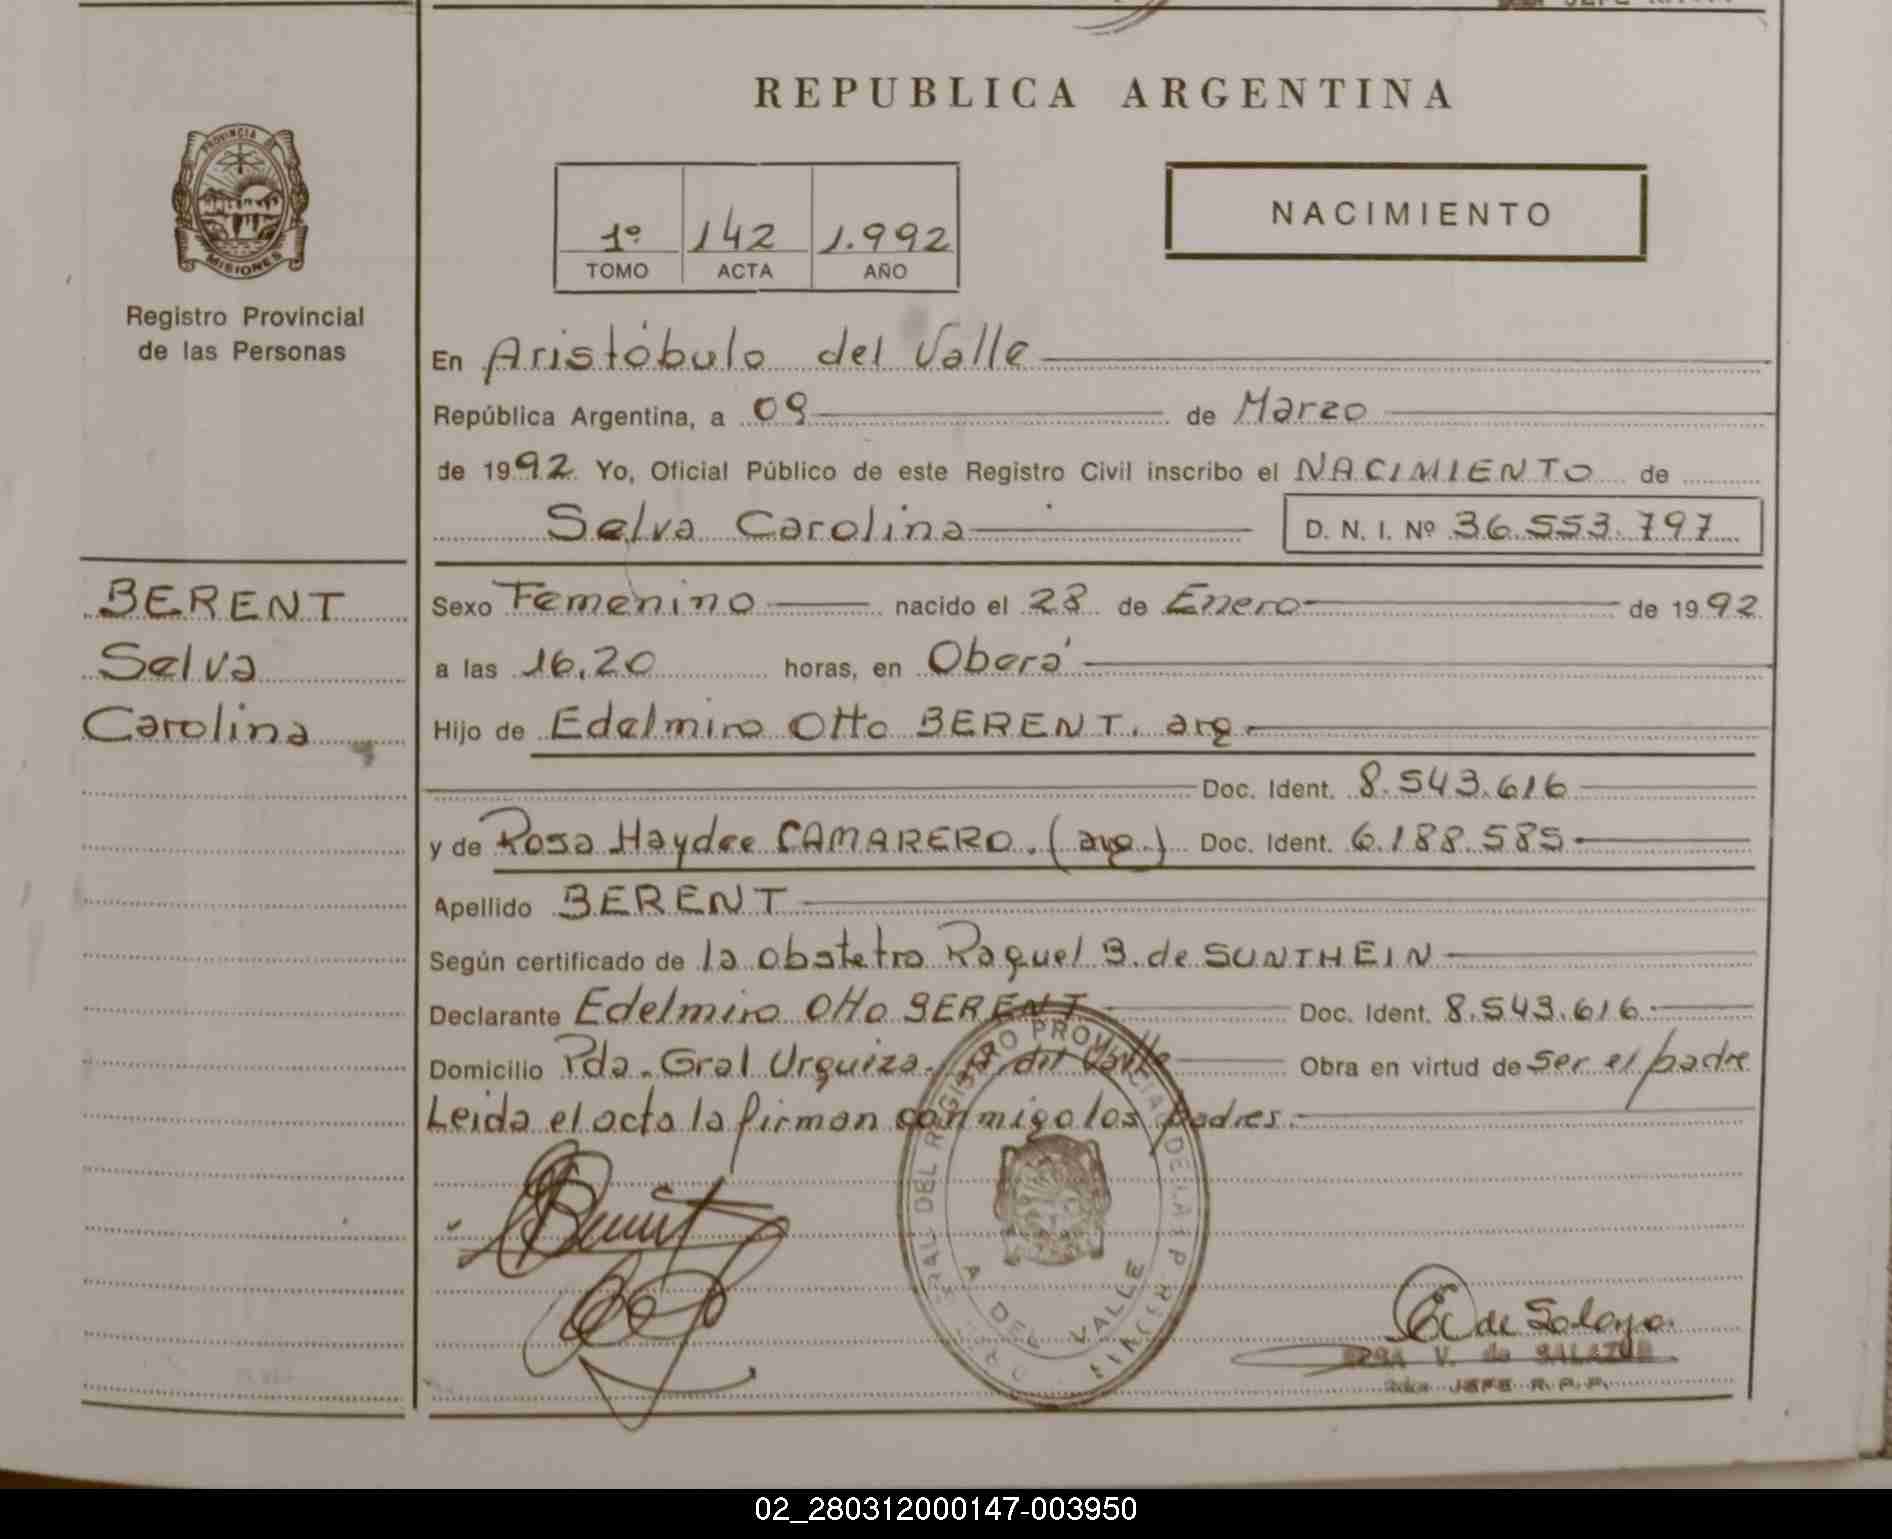 JEFE
REPUBLICA ARGENTINA
PROVINCIA DE
MISIONES
Registro Provincial
de las Personas
1º 142 1.992
TOMO ACTA AÑO
NACIMIENTO
En Aristóbulo del Valle
República Argentina, a 09 de Marzo
de 1992 Yo, Oficial Público de este Registro Civil inscribo el NACIMIENTO de
Selva Carolina D. N. I. Nº 36.553.797
BERENT
Selva
Carolina
Sexo Femenino nacido el 28 de Enero de 1992
a las 16,20 horas, en Oberá
Hijo de Edelmiro Otto BERENT. arg
Doc. Ident. 8.543.616
y de Rosa Haydee CAMARERO. (arg.) Doc. Ident. 6.188.585
Apellido BERENT
Según certificado de la obstetra Raquel B. de SUNTHEIN
Declarante Edelmiro Otto BERENT Doc. Ident. 8.543.616
Domicilio Pda. Gral Urquiza. A. del Valle Obra en virtud de ser el padre
Leida el acta la firman conmigo los padres.
Berent
DEL REGISTRO PROVINCIAL DE LAS P
A DEL VALLE
E. de Salazar
V. de SALAZAR
JEFE R. P. P.
02_280312000147-003950